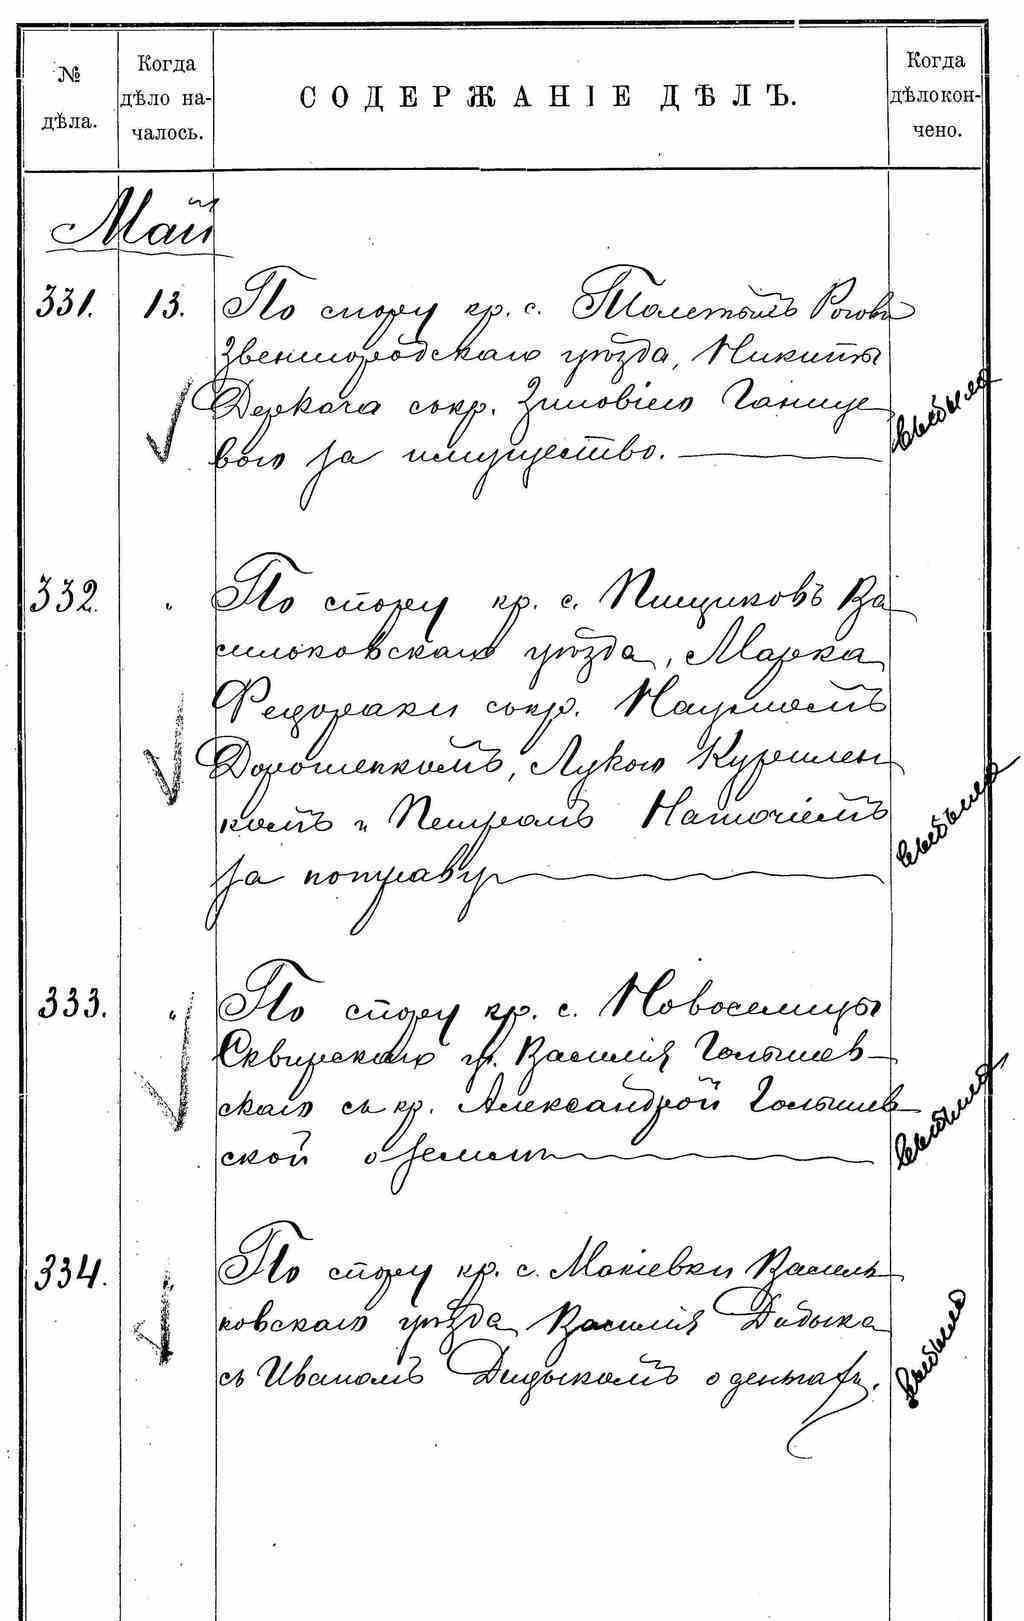 № дѣла.
Когда дѣло на-
чалось.
СОДЕРЖАНІЕ ДѢЛЪ.
Когда дѣло кон-
чено.
Май
331. 13. По спору кр. с. Толстыхъ Рогов
Звенигородскаго уѣзда, Никиты
Деркача съ кр. Зиновіею Ганице
вою за имущество.
выбыло
332. " По спору кр. с. Пищиковъ Ва
сильковскаго уѣзда, Марка
Федораки съ кр. Наумомъ
Дорошенкомъ, Лукою Курилен
комъ и Петромъ
за потраву
выбыло
333. " По спору кр. с. Новоселицы
Сквирскаго у. Василія Голышев-
скаго съ кр. Александрой Голышев
ской о земли
выбыло
334. По спору кр. с. Макіевки Василь
ковскаго уѣзда Василія Дидыка
съ Иваномъ Дидыкомъ о деньгахъ.
выбыло